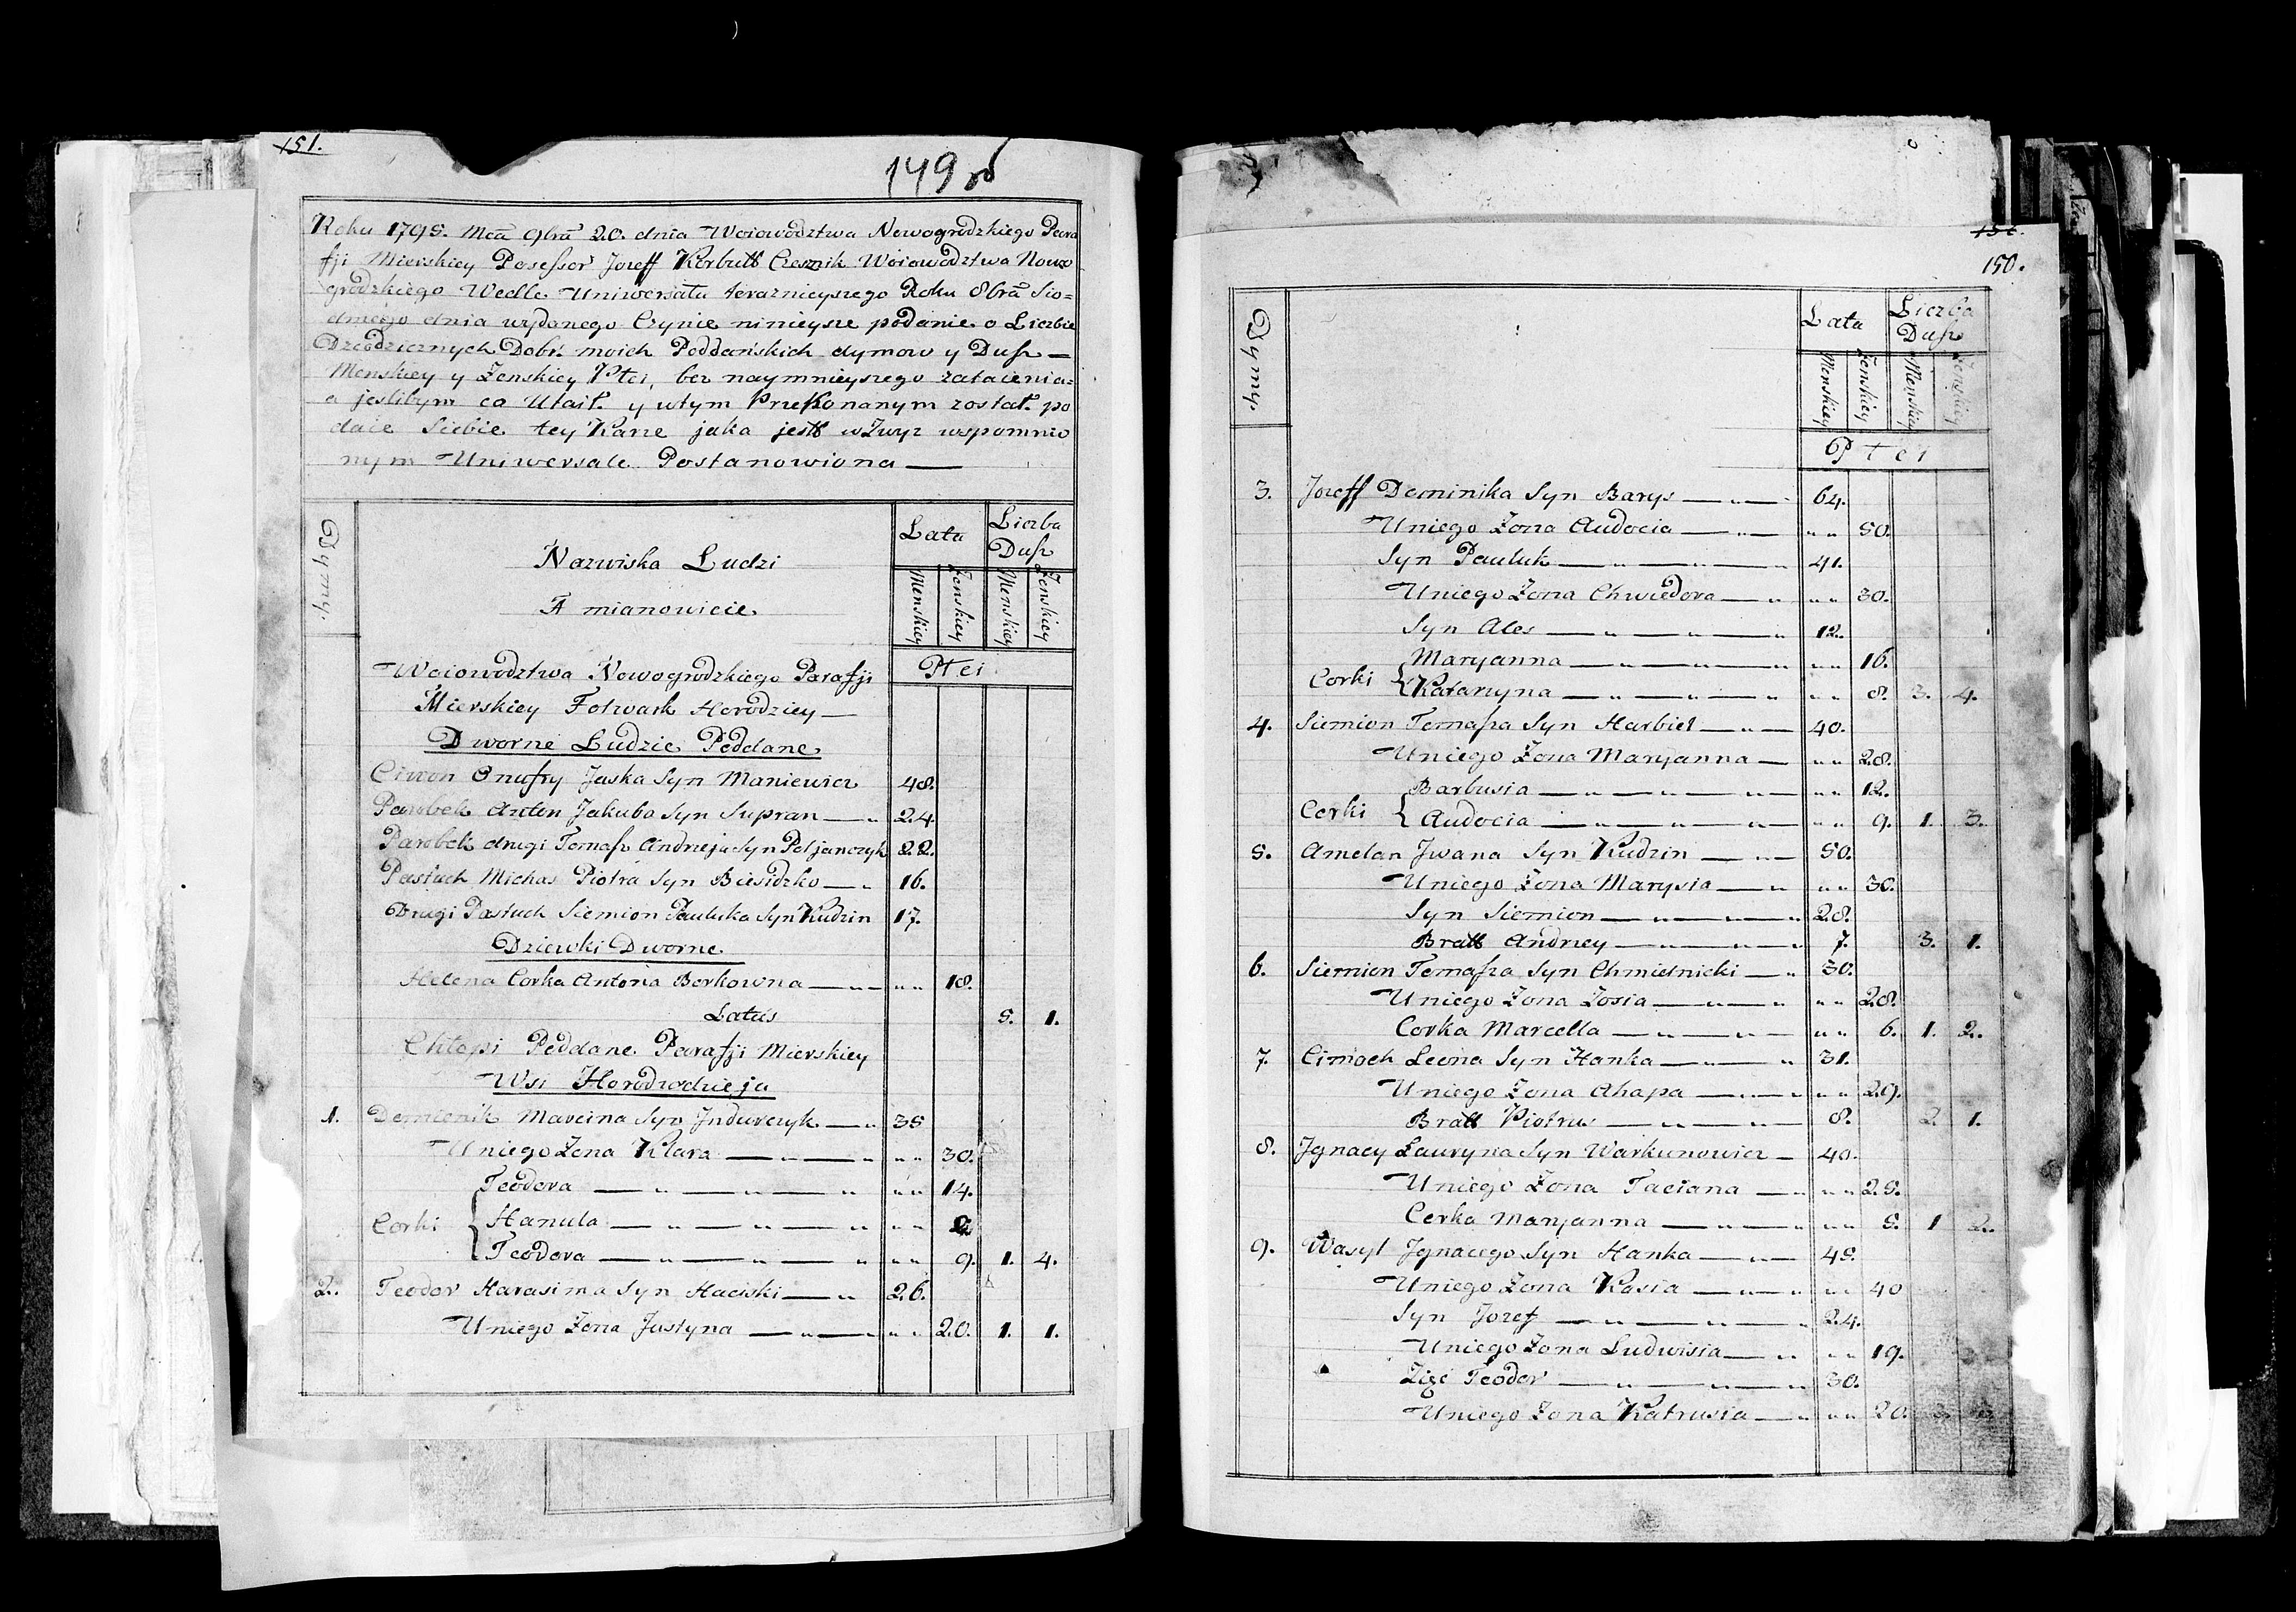 151.
149 об
Roku 1795. Mca 9bra 20. dnia Woiowodztwa Nowogrodzkiego Para
fji Mierskiey Posessor Jozeff Korbutt Czesznik Woiowodztwa Nowo
grodzkiego Wedle Uniwersatu teraznieyszego Roku 8bra Sio=
dmego dnia wydanego Czynie ninieysze podanie o Liczbie
Dziedzicznych Dobr. moich Poddańskich dymow y Dusz —
Menskiey y Zenskiey Ptci, bez naymnieyszego zataienia=
a jeslibym co Utait. y wtym Przekonanym zostat. po
daie Siebie tey Karze jaka jestt wZwyz wspomnio
nym Uniwersale Postanowiona —
Dymy.
Nazwiska Ludzi
A mianowicie.
Lata
Liczba Dusz
Menskiey Zenskiey Menskiey Zenskiey
Ptci
Woiowodztwa Nowogrodzkiego Parafji
Mierskiey Folwark Horodziey —
Dworne Ludzie Poddane
Ciwon Onufry Jaska Syn Maniewicz 48.
Parobek Anton Jakuba Syn Supran — „ 24.
Parobek drugi Tomasz Andrzeja Syn Poljanczyk 22.
Pastuch Michas Piotra Syn Biesidzko — „ 16.
Drugi Pastuch Siemion Pauluka Syn Kudzin 17.
Dziewki Dworne
Helena Corka Antona Borkowna — „ — „ „ 18.
Latus 5. 1.
Chłopi Poddane Parafji Mierskiey
Wsi Horodzedzieja
1. Demienik Marcina Syn Jndurczyk — „ 35
Uniego Zona Klara — „ — „ — „ „ „ 30.
Teodora — „ — „ — „ „ „ 14.
Corki { Hanula — „ — „ — „ „ „
Teodora — „ — „ — „ „ „ 9. 1. 4.
2. Teodor Harasima Syn Haciski — „ 26.
Uniego Zona Justyna — „ — „ „ 20. 1. 1.
150.
Dymy.
Lata
Liczba Dusz
Menskiey Zenskiey Menskiey Zenskiey
Ptci
3. Jozeff Dominika Syn Barys — „ — 64.
Uniego Zona Audocia — „ — „ „ 50.
Syn Pauluk — „ — „ — 41.
Uniego Zona Chwiedora — „ „ „ 30.
Syn Ales — „ — „ — „ 12.
Maryanna — „ — „ — „ „ 16.
Corki { Katarzyna — „ — „ — „ „ 8. 3. 4.
4. Siemion Tomasza Syn Harbiel — „ — 40.
Uniego Zona Maryanna — „ „ 28.
Barbusia — „ — „ — „ „ 12.
Corki { Audocia — „ — „ — „ „ 9. 1. 3.
5. Amelan Jwana Syn Kudzin — „ — 50.
Uniego Zona Marysia — „ „ „ 30.
Syn Siemion — „ — „ 28.
Bratt Andrzey — „ — „ — „ 7. 3. 1.
6. Siemion Tomasza Syn Chmielnicki — „ 30.
Uniego Zona Zosia — „ — „ „ „ 28.
Corka Marcella — „ — „ — „ „ 6. 1. 2.
7. Cimoch Leona Syn Hanka — „ — „ 31.
Uniego Zona Ahapa — „ — „ „ „ 29.
Bratt Piotrus — „ — „ — 8. 2. 1.
8. Jgnacy Lauryna Syn Warkunowicz — 40.
Uniego Zona Taciana — „ „ „ 25.
Corka Maryanna — „ — „ „ „ 5. 1 2.
9. Wasyl Jgnacego Syn Hanka — „ — 45.
Uniego Zona Kasia — „ — „ „ „ 40
Syn Jozef — „ — „ — „ 24.
Uniego Zona Ludwisia — „ „ „ 19.
Zięć Teodor — „ — „ — „ 30.
Uniego Zona Katrusia — „ „ „ 20.